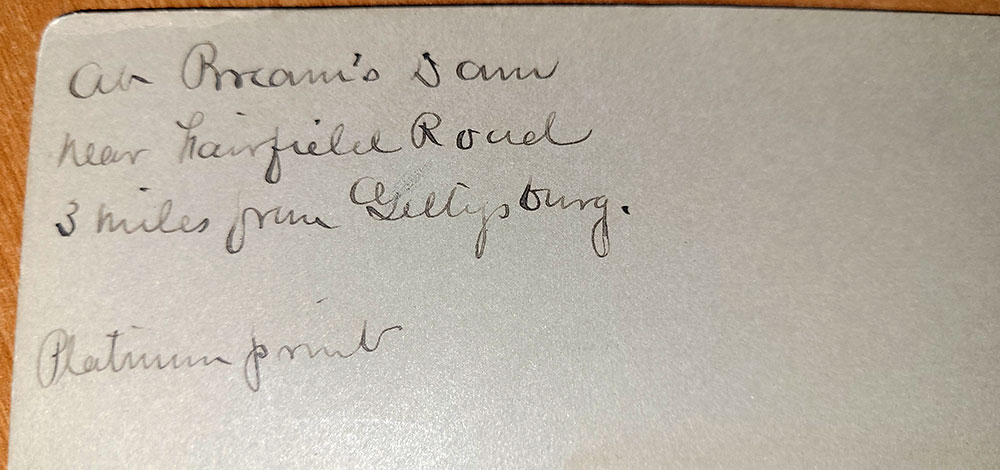 At Bream's Dam
near Fairfield Road
3 miles from Gettysburg.
Platinum print